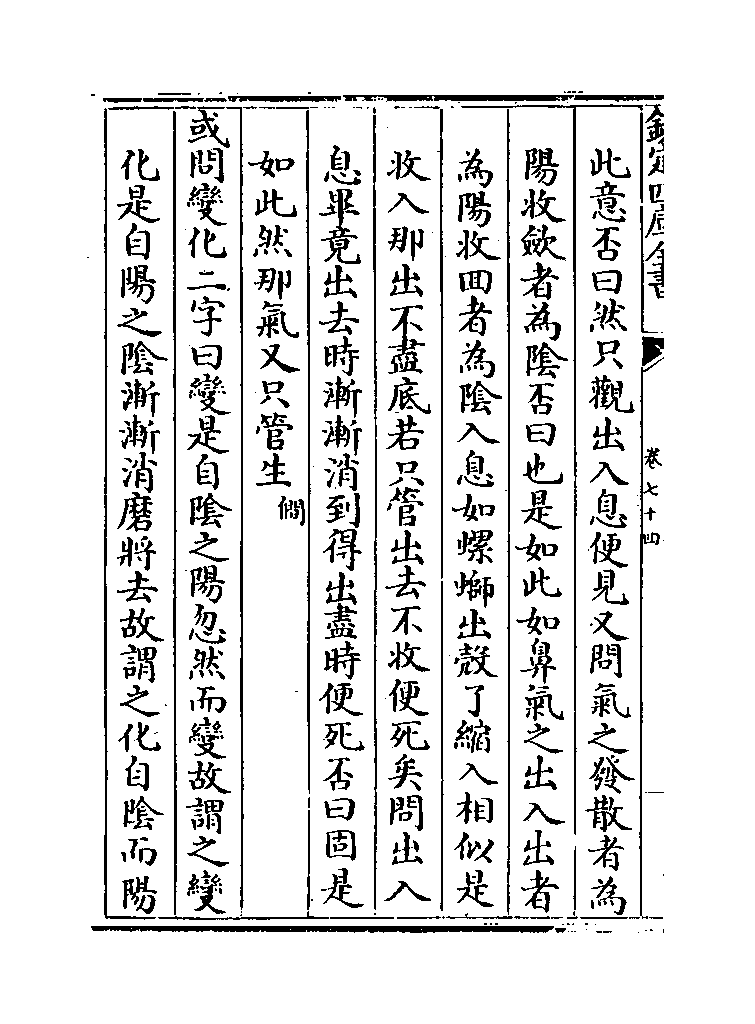 欽定四庫全書
卷七十四
此意否曰然只觀出入息便見又問氣之發散者為
陽收歛者為陰否曰也是如此如鼻氣之出入出者
為陽收回者為陰入息如螺螄出殼了縮入相似是
收入那出不盡底若只管出去不收便死矣問出入
息畢竟出去時漸漸消到得出盡時便死否曰固是
如此然那氣又只管生
僩
或問變化二字曰變是自陰之陽忽然而變故謂之變
化是自陽之陰漸漸消磨將去故謂之化自陰而陽